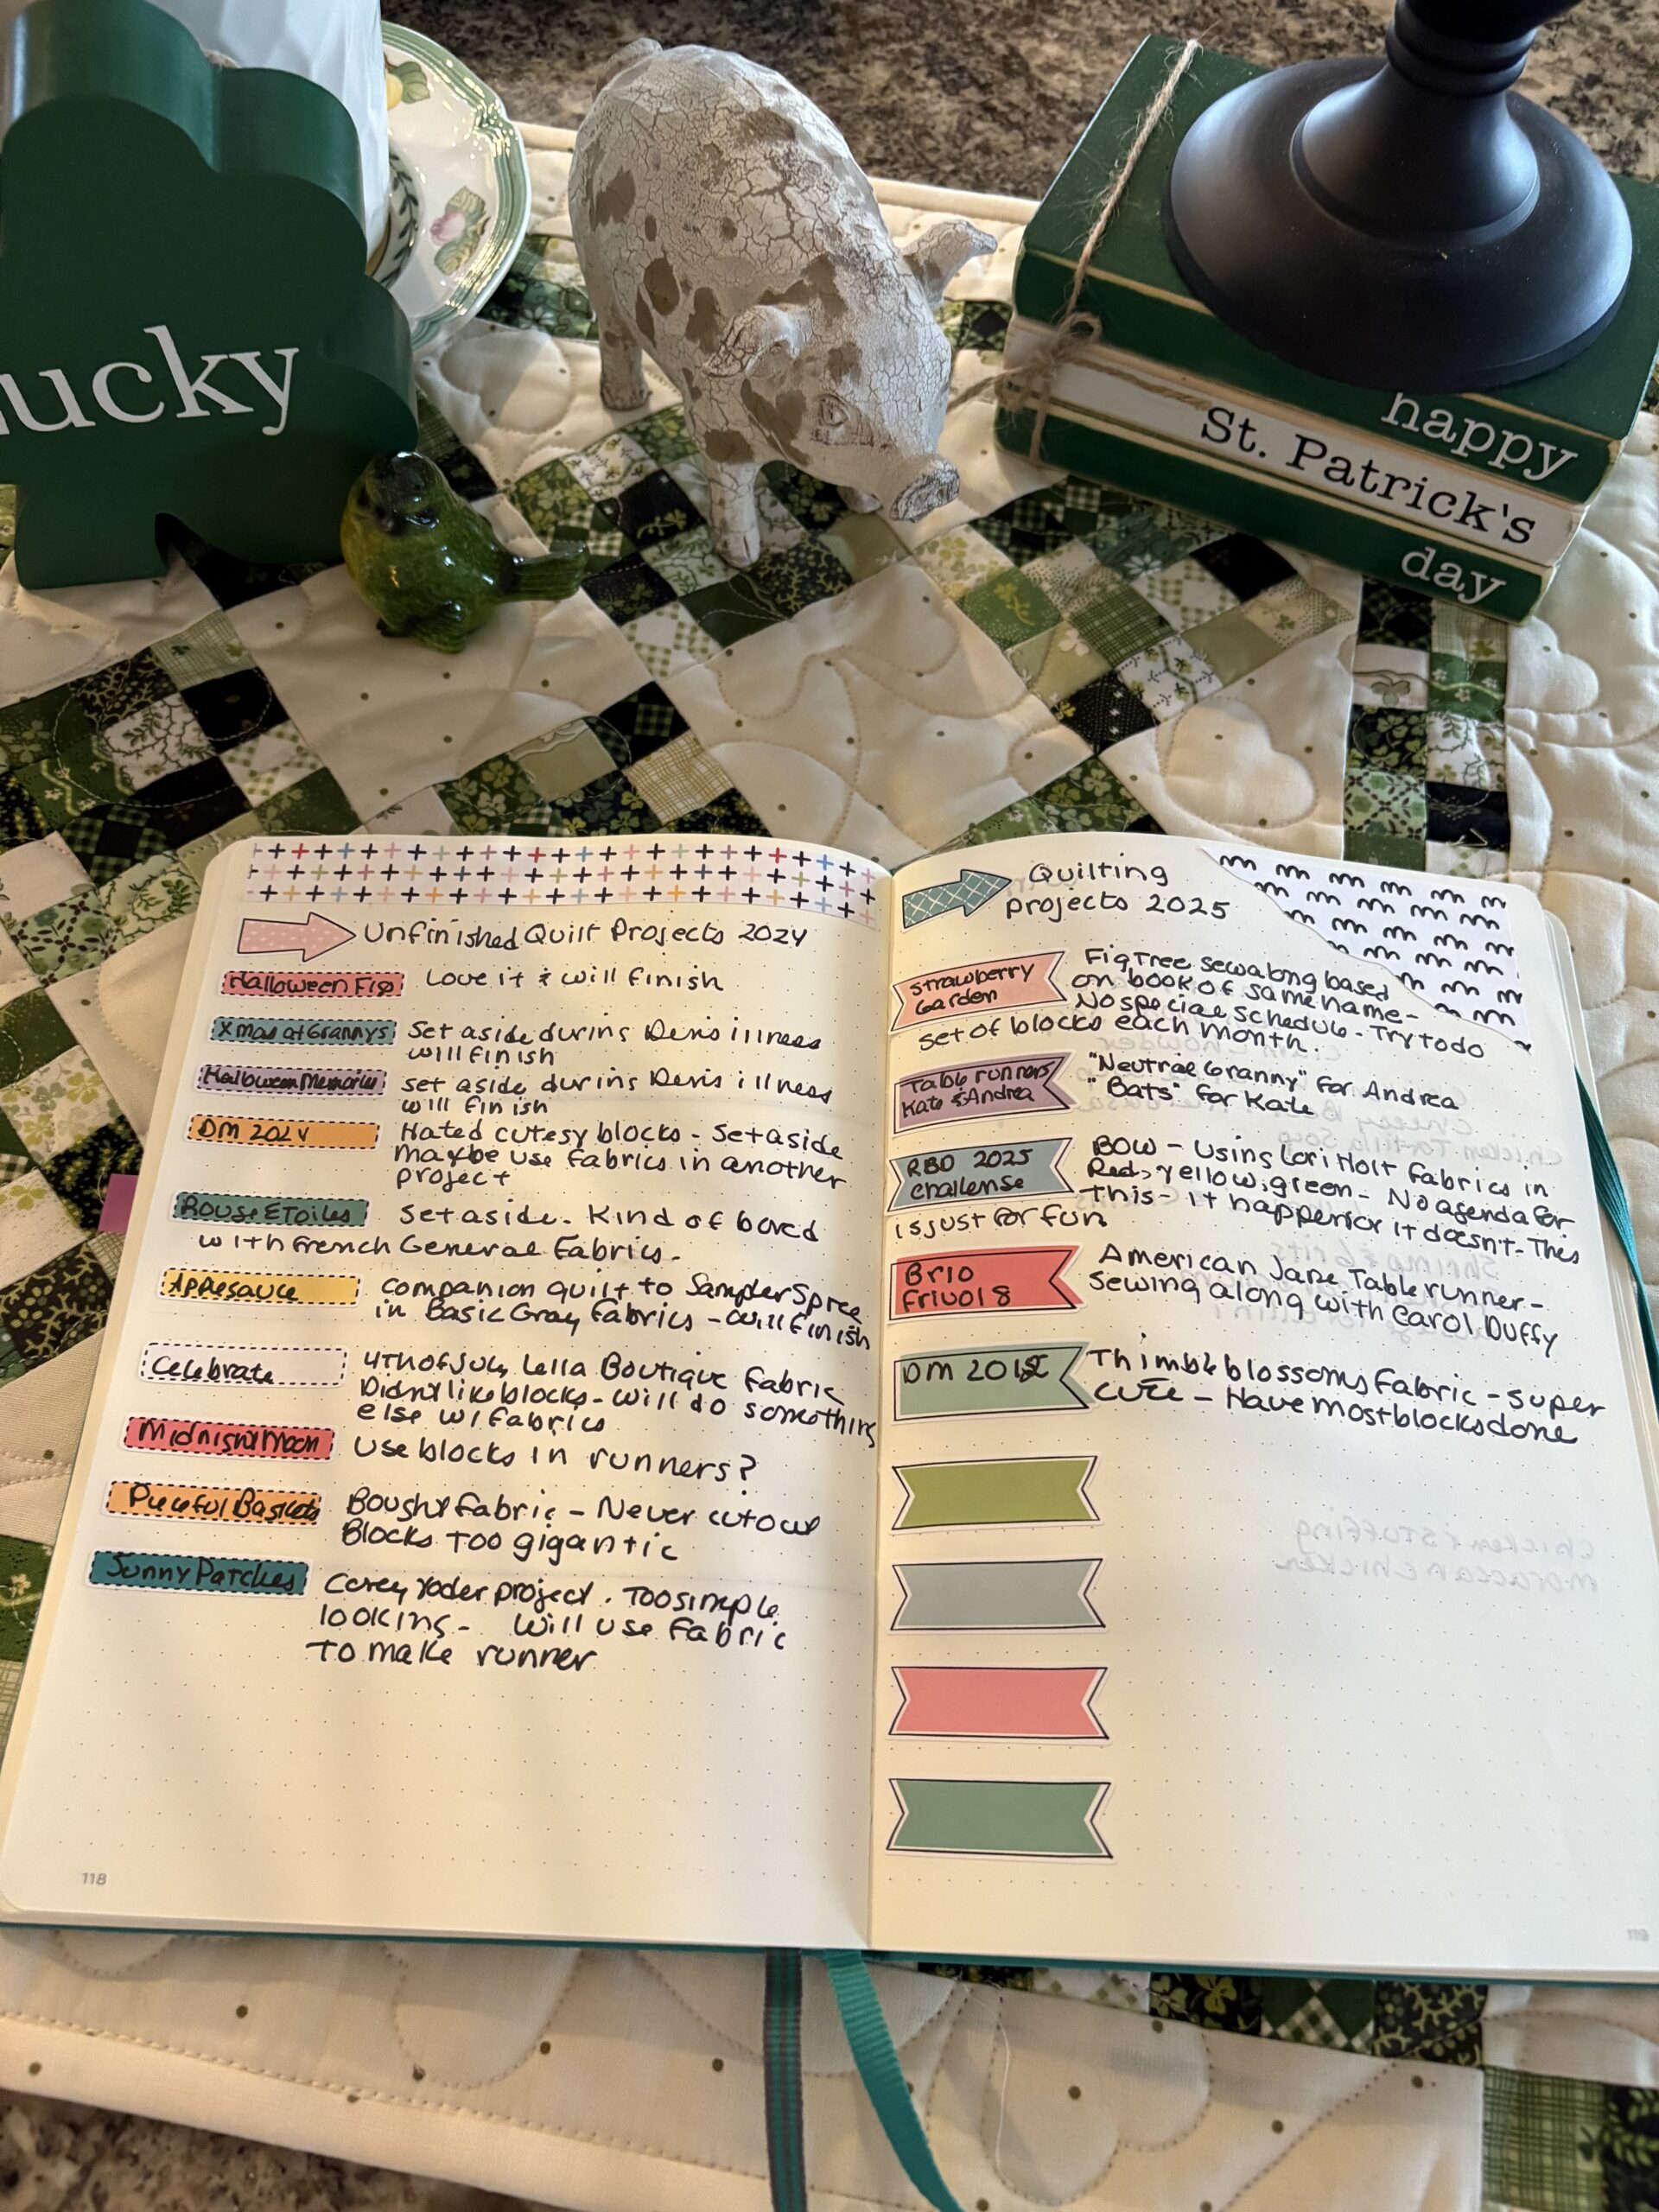 ucky
happy
St. Patrick's
day
Unfinished Quilt Projects 2024
Halloween Figs
Love it & will finish
Xmas at Grannys
Set aside during Devis illness
will finish
Halloween Memories
set aside during Devis illness
will finish
DM 2024
Hated cutesy blocks - set aside
maybe use fabrics in another
project
Rouse EToiles
set aside. Kind of bored
with French General Fabrics.
Applesauce
companion quilt to Sampler Spree
in Basic Gray fabrics - will finish
Celebrate
4th of July Lella Boutique fabric
Didn't like blocks - will do something
else w/ fabrics
Midnight Moon
Use blocks in runners?
Pieceful Baskets
Bought fabric - Never cut out
Blocks too gigantic
Sunny Patches
Corey Yoder project. Too simple
looking - will use fabric
to make runner
118
Quilting
projects 2025
Strawberry
Garden
Fig Tree sewalong based
on book of same name -
No special schedule - Try to do
set of blocks each month.
Table runners
Kate & Andrea
"Neutral Granny" for Andrea
"Bats" for Kate
RBD 2025
challenge
BOW - Using Lori Holt fabrics in
Red, yellow, green - No agenda for
this - it happens or it doesn't - This
is just for fun
Brio
Frivol 8
American Jane Table runner -
sewing along with Carol Duffy
DM
Thimbleblossoms fabric - super
cute - Have most blocks done
119